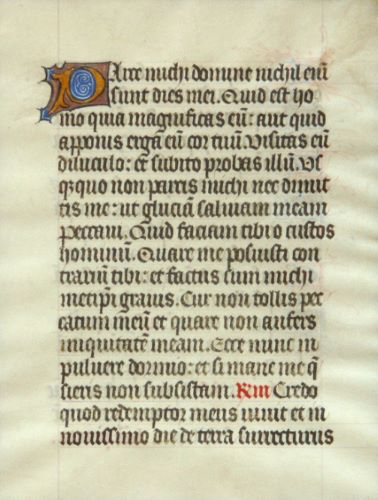 Parce michi domine nichil eni̅
sunt dies mei. Quid est ho
mo quia magnificas eu̅: aut quid
apponis erga eu̅ cor tuu̅. Visitas eu̅
diluculo: et subito probas illu̅. Vs
q̲quo non parcis michi nec dimit
tis me: ut glucia̅ salivam meam
Peccavi. Quid faciam tibi o custos
hominu̅. Quare me posuisti con
trariu̅ tibi: et factus sum michi
metip̅i gravis. Cur non tollis pec
catum meu̅ et quare non aufers
iniquitate̅ meam. Ecce nunc in
pulvere dormio: et si mane me q̅
sieris non subsistam. Rm̅ Credo
quod redemptor meus vivit et in
novissimo die de terra surrecturus